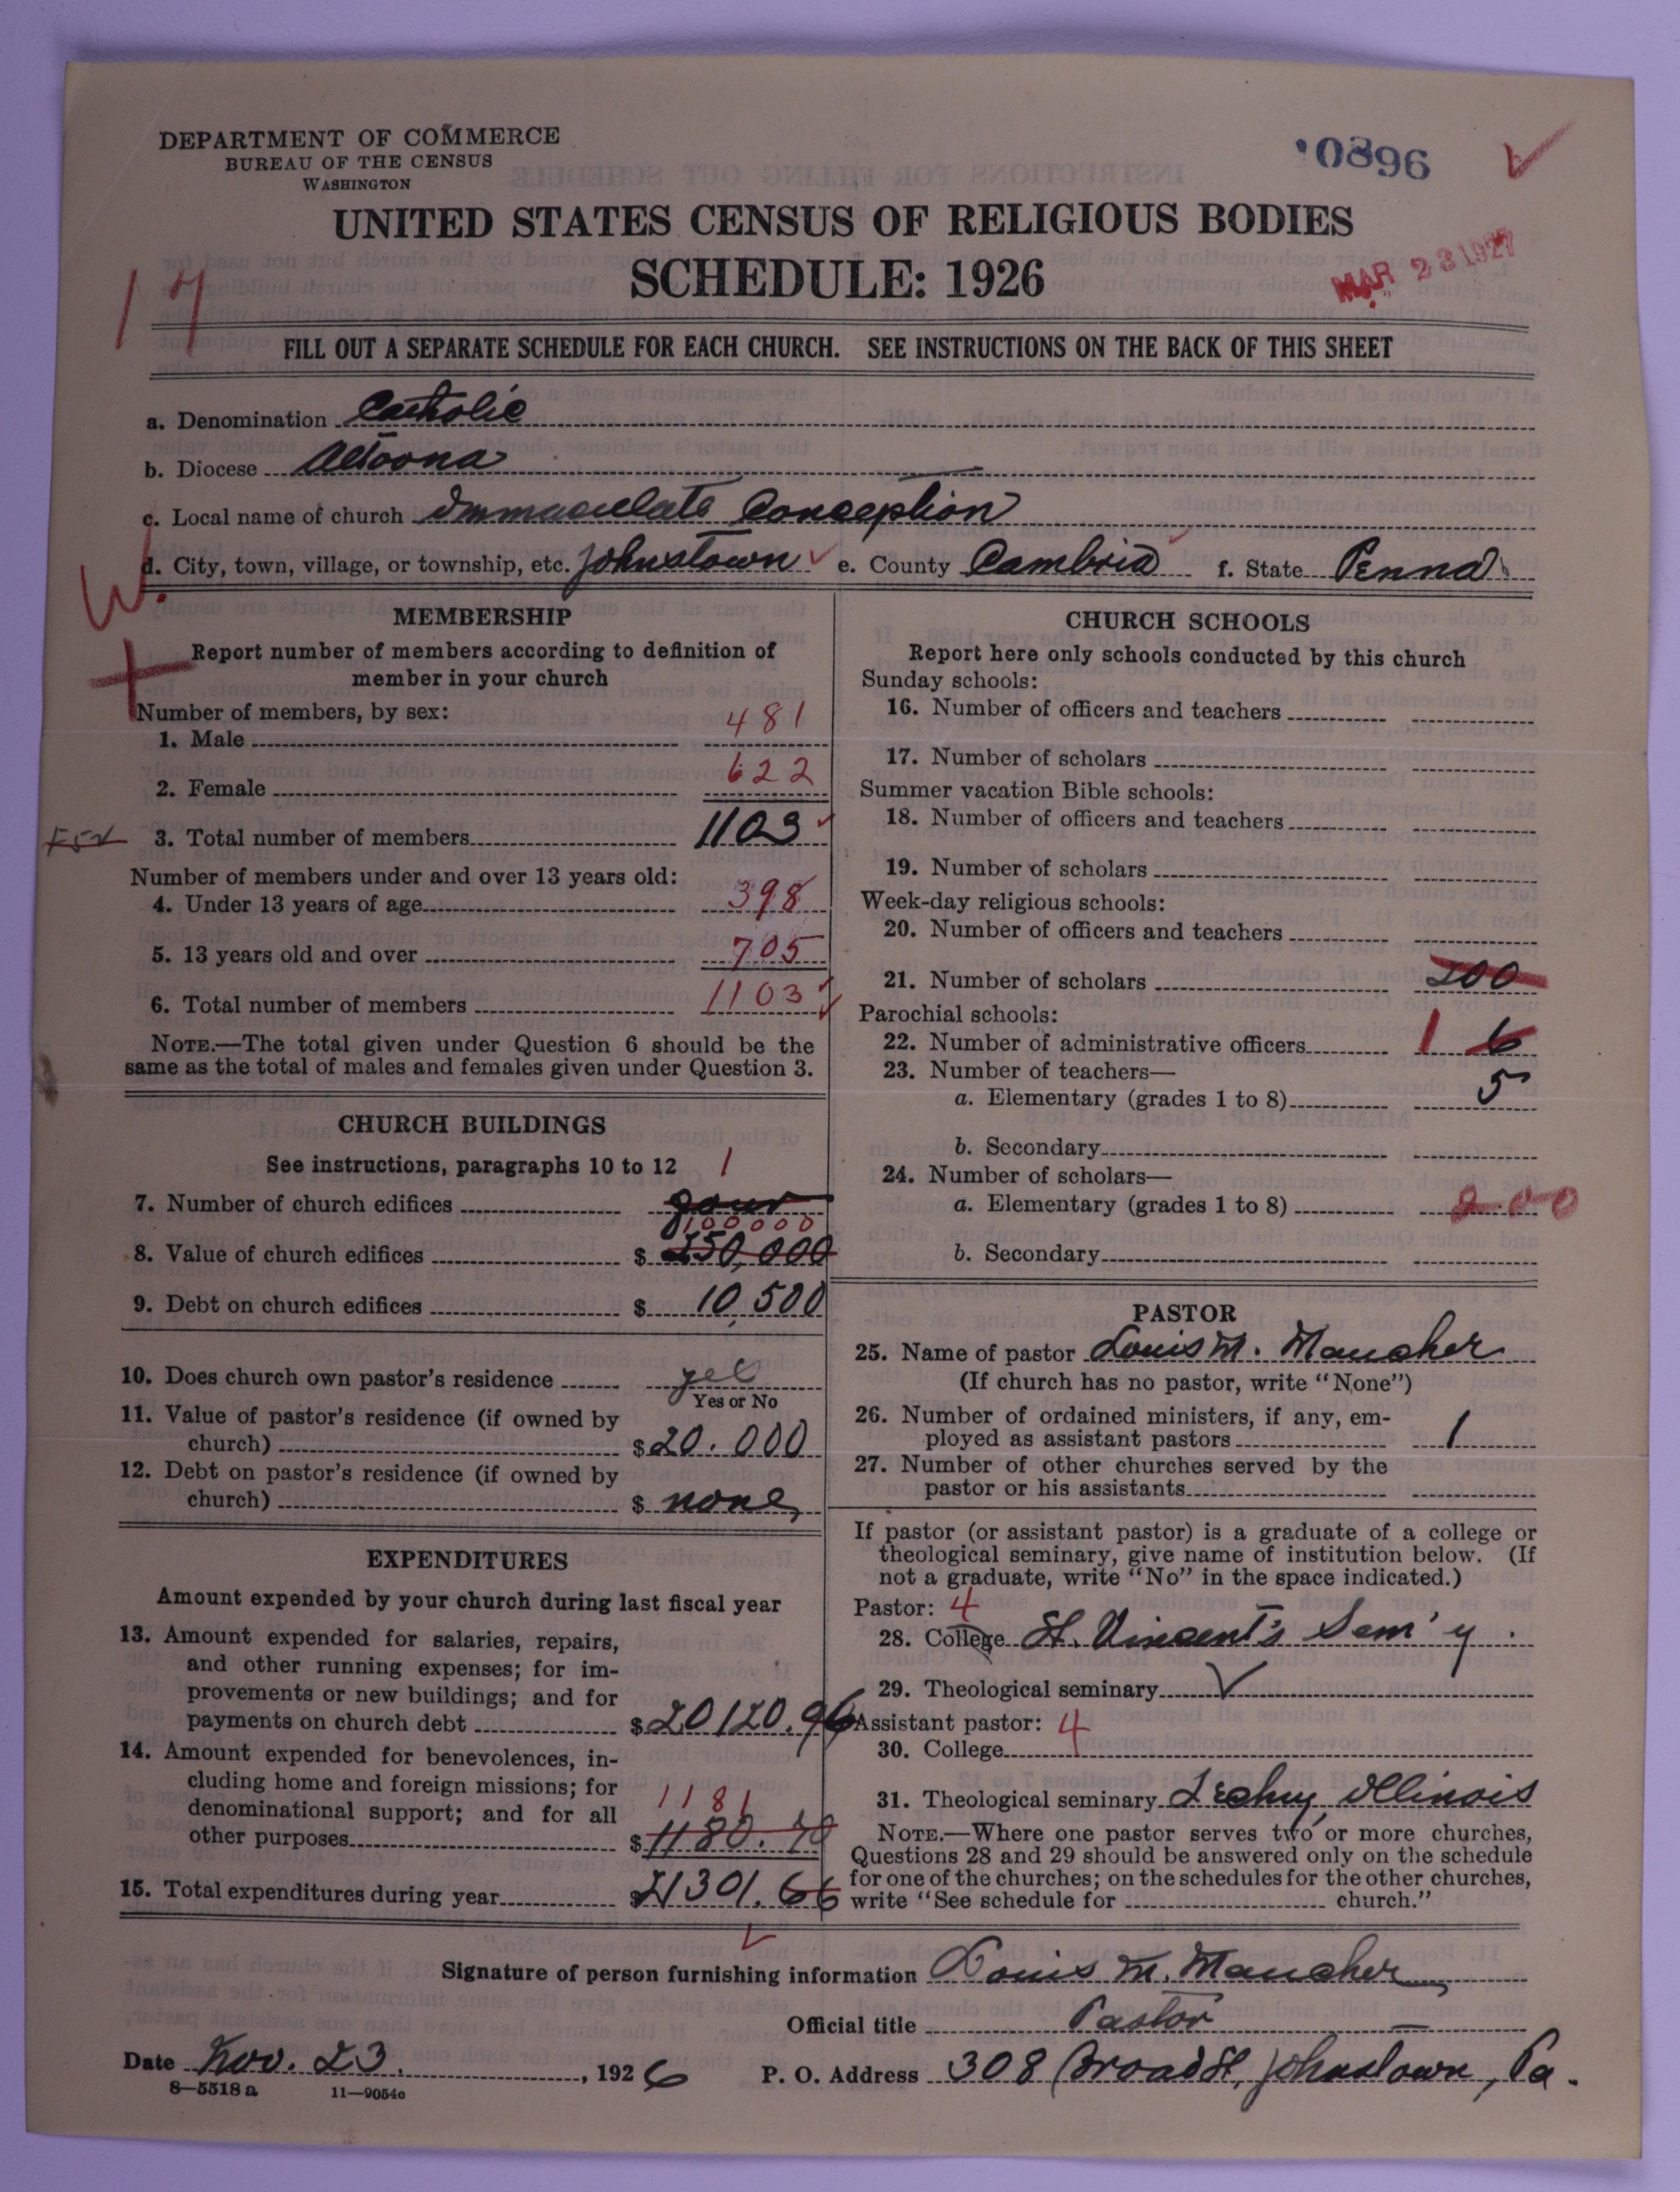 DEPARTMENT OF COMMERCE
BUREAU OF THE CENSUS
WASHINGTON
0896
UNITED STATES CENSUS OF RELIGIOUS BODIES
SCHEDULE: 1926
MAR 23 1927
17
FILL OUT A SEPARATE SCHEDULE FOR EACH CHURCH. SEE INSTRUCTIONS ON THE BACK OF THIS SHEET
a. Denomination Catholic
b. Diocese Altoona
c. Local name of church Immaculate Conception
d. City, town, village, or township, etc. Johnstown e. County Cambria f. State Penna
W.
MEMBERSHIP
Report number of members according to definition of
member in your church
Number of members, by sex:
1. Male 481
2. Female 622
3. Total number of members 1103
Number of members under and over 13 years old:
4. Under 13 years of age 398
5. 13 years old and over 705
6. Total number of members 1103
NOTE.—The total given under Question 6 should be the
same as the total of males and females given under Question 3.
CHURCH BUILDINGS
See instructions, paragraphs 10 to 12 1
7. Number of church edifices four
100000
8. Value of church edifices $ 250,000
9. Debt on church edifices $ 10,500
10. Does church own pastor's residence yes
Yes or No
11. Value of pastor's residence (if owned by
church) $ 20.000
12. Debt on pastor's residence (if owned by
church) $ none
EXPENDITURES
Amount expended by your church during last fiscal year
13. Amount expended for salaries, repairs,
and other running expenses; for im-
provements or new buildings; and for
payments on church debt $ 20120.96
14. Amount expended for benevolences, in-
cluding home and foreign missions; for
denominational support; and for all 1181
other purposes $ 1180.70
15. Total expenditures during year $ 21301.66
CHURCH SCHOOLS
Report here only schools conducted by this church
Sunday schools:
16. Number of officers and teachers
17. Number of scholars
Summer vacation Bible schools:
18. Number of officers and teachers
19. Number of scholars
Week-day religious schools:
20. Number of officers and teachers
21. Number of scholars 200
Parochial schools:
22. Number of administrative officers 1 6
23. Number of teachers—
a. Elementary (grades 1 to 8) 5
b. Secondary
24. Number of scholars—
a. Elementary (grades 1 to 8) 200
b. Secondary
PASTOR
25. Name of pastor Louis M. Maucher
(If church has no pastor, write "None")
26. Number of ordained ministers, if any, em-
ployed as assistant pastors 1
27. Number of other churches served by the
pastor or his assistants
If pastor (or assistant pastor) is a graduate of a college or
theological seminary, give name of institution below. (If
not a graduate, write "No" in the space indicated.)
Pastor: 4
28. College St. Vincent's Sem'y.
29. Theological seminary
Assistant pastor: 4
30. College
31. Theological seminary Techny, Illinois
NOTE.—Where one pastor serves two or more churches,
Questions 28 and 29 should be answered only on the schedule
for one of the churches; on the schedules for the other churches,
write "See schedule for church."
Signature of person furnishing information Louis M. Maucher
Official title Pastor
Date Nov. 23. , 1926 P. O. Address 308 Broad St, Johnstown, Pa.
8—5518a 11—9054c